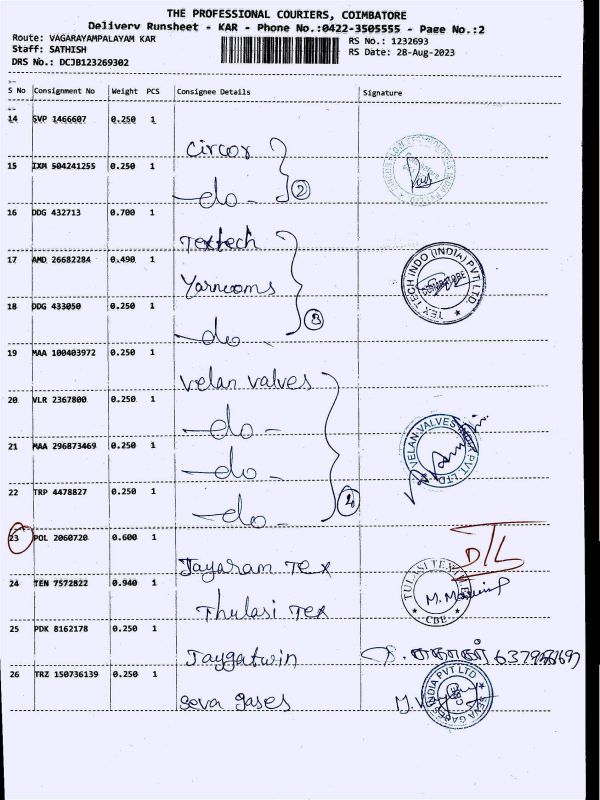 THE PROFESSIONAL COURIERS, COIMBATORE
Delivery Runsheet - KAR - Phone No.:0422-3505555 - Page No.:2
Route: VAGARAYAMPALAYAM KAR
RS No.: 1232693
Staff: SATHISH
RS Date: 28-Aug-2023
DRS No.: DCJB123269302
S No Consignment No Weight PCS Consignee Details Signature
14 SVP 1466607 0.250 1
Circor
15 IXM 504241255 0.250 1
-do- 2
16 DDG 432713 0.700 1
Textech
17 AMD 26682284 0.490 1
TEX TECH INDO (INDIA) PVT LTD. COIMBATORE
Yarncoms
18 DDG 433050 0.250 1
-do- 3
19 MAA 100403972 0.250 1
Velan valves
20 VLR 2367800 0.250 1
-do-
VELAN VALVES INDIA PVT LTD
21 MAA 296873469 0.250 1
-do-
22 TRP 4478827 0.250 1
-do- 4
23 POL 2060720 0.600 1
Jayaram Tex
D/L
24 TEN 7572822 0.940 1
Thulasi Tex
TULASI TEX CBE
25 PDK 8162178 0.250 1
Jaygatwin
26 TRZ 150736139 0.250 1
Seva gases
SENA GASES INDIA PVT LTD